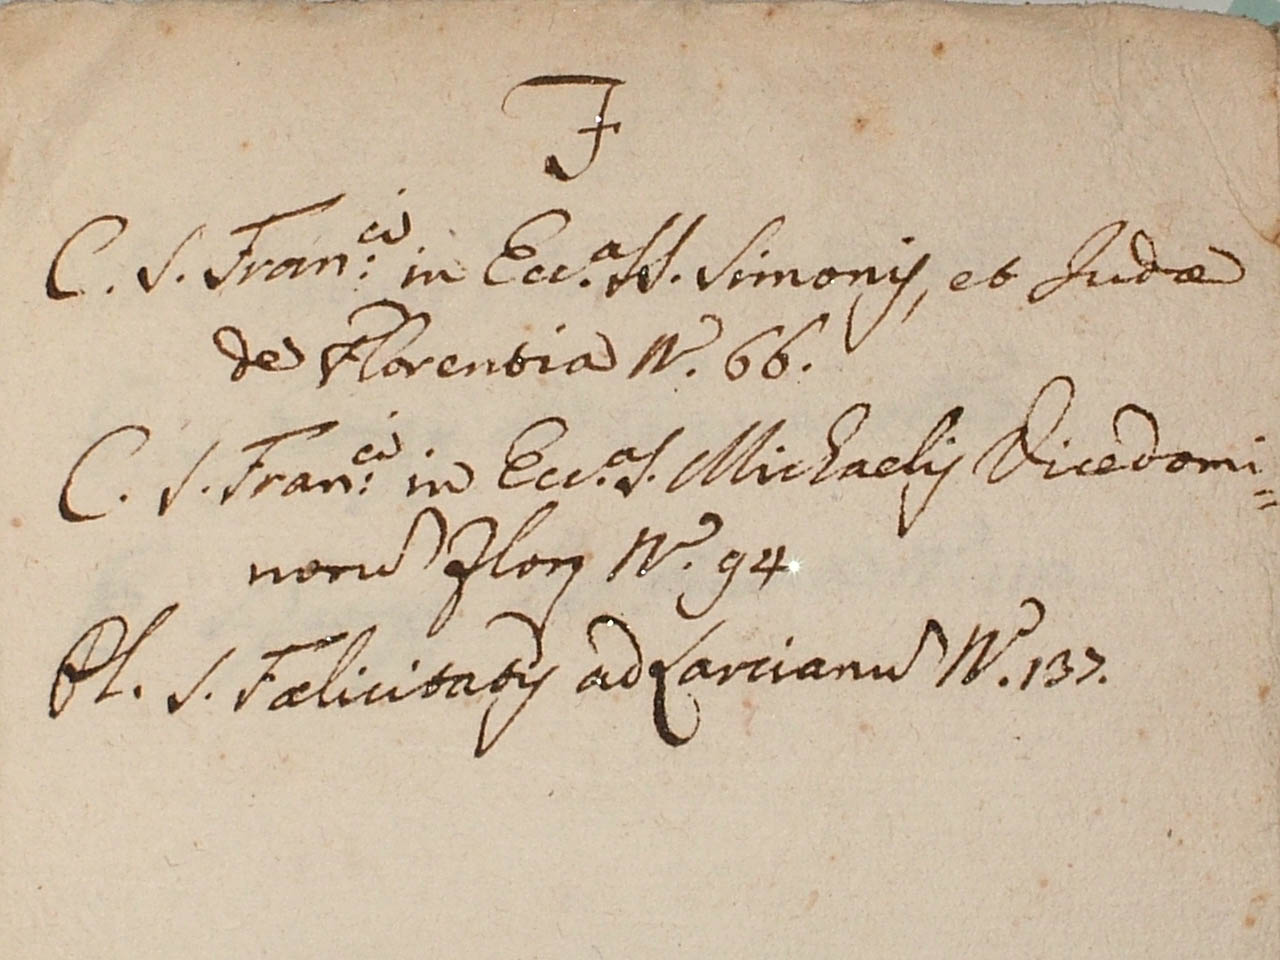 F
C. S. Fran:ci in Ecc.a SS. Simonis, et Judæ
de Florentia N.o 66.
C. S. Fran:ci in Ecc.a S. Michaelis Vicedomi=
norũ Flor. N.o 94
Pl. S. Fælicitatis ad Larcianũ N.o 137.